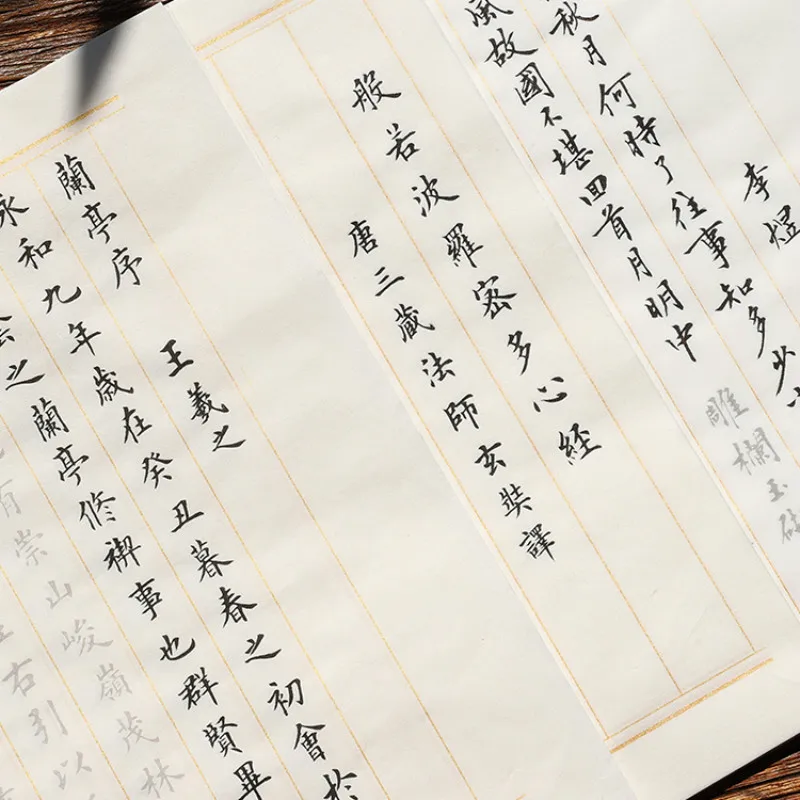 李煜
秋月何時了往事知多少小
風故國不堪回首月明中雕欄玉砌
般若波羅密多心經
唐三藏法師玄奘譯
蘭亭序 王羲之
永和九年歲在癸丑暮春之初會於
之蘭亭修禊事也群賢畢
有崇山峻嶺茂林
右引以